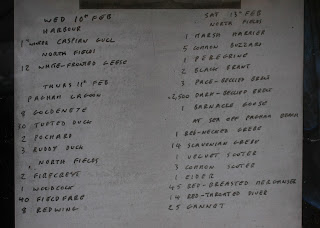 WED 10th FEB
HARBOUR
1st WINTER CASPIAN GULL
NORTH FIELDS
12 WHITE-FRONTED GEESE
THURS 11th FEB
PAGHAM LAGOON
8 GOLDENEYE
30 TUFTED DUCK
2 POCHARD
3 RUDDY DUCK
NORTH FIELDS
2 FIRECREST
1 WOODCOCK
40 FIELDFARE
8 REDWING
SAT 13th FEB
NORTH FIELDS
1 MARSH HARRIER
5 COMMON BUZZARD
1 PEREGRINE
2 BLACK BRANT
3 PALE-BELLIED BRENT
2,500 DARK-BELLIED BRENT
1 BARNACLE GOOSE
AT SEA OFF PAGHAM BEACH
1 RED-NECKED GREBE
14 SLAVONIAN GREBE
1 VELVET SCOTER
3 COMMON SCOTER
1 EIDER
45 RED-BREASTED MERGANSER
14 RED-THROATED DIVER
25 GANNET